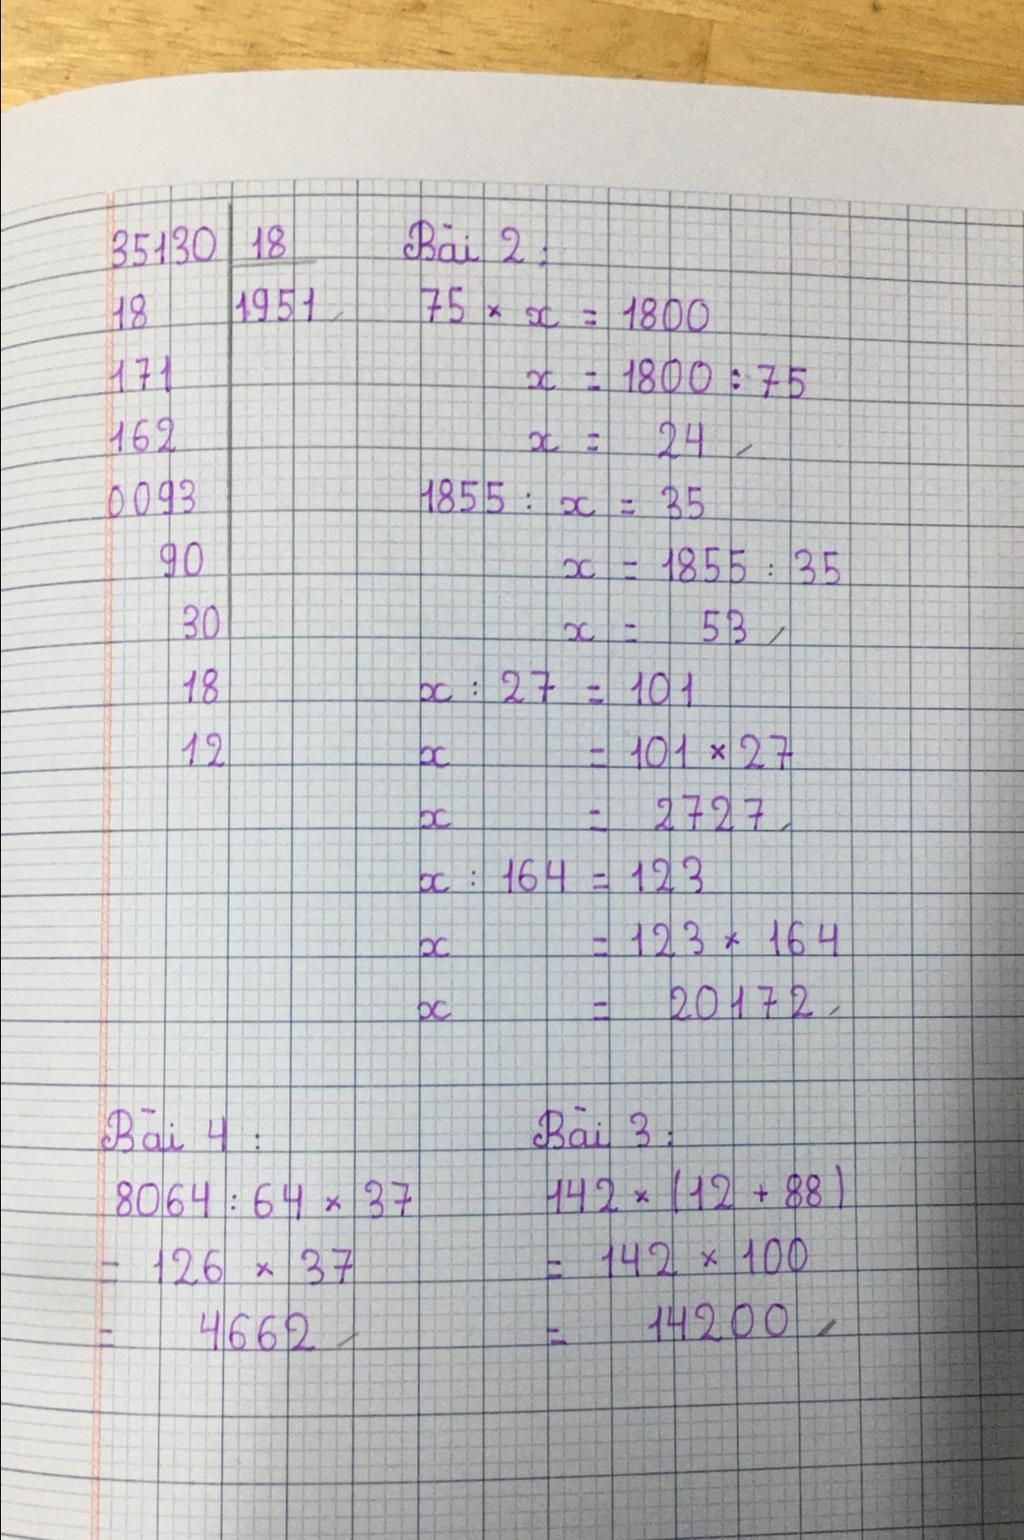 35130 18
18 1951
171
162
0093
90
30
18
12
Bài 2:
75 × x = 1800
x = 1800 : 75
x = 24
1855 : x = 35
x = 1855 : 35
x = 53
x : 27 = 101
x = 101 × 27
x = 2727
x : 164 = 123
x = 123 × 164
x = 20172
Bài 4:
8064 : 64 × 37
= 126 × 37
= 4662
Bài 3:
142 × (12 + 88)
= 142 × 100
= 14200